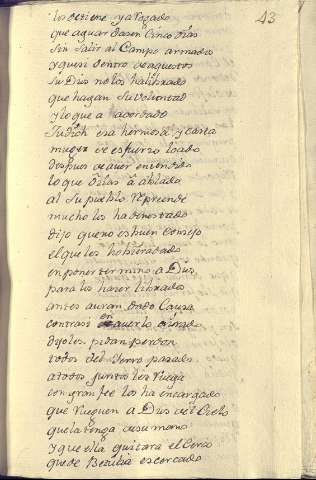 43
los detiene y a rogado
que aguardasen cinco dias
sin salir al Campo armados
y que si dentro de aquestos
su Dios no los ha librado
que hagan su voluntad
y lo que a acordado
Judith era hermosa y casta
muger de esfuerzo loado
despues de aver entendido
lo que Osias â ablado
al su pueblo reprende
mucho los ha denostado
dijo que no es buen consejo
el que les
en poner termino a Dios
para los haser librados
antes auran dado Causa
contra si en auerlo
dijoles pidan perdon
todos del yerro pasado
a todos juntos les ruega
con gran fee los ha encargado
que rueguen a Dios del Cielo
que la tenga de su mano
y que ella quitara el Cerco
que de Betulia es cercado